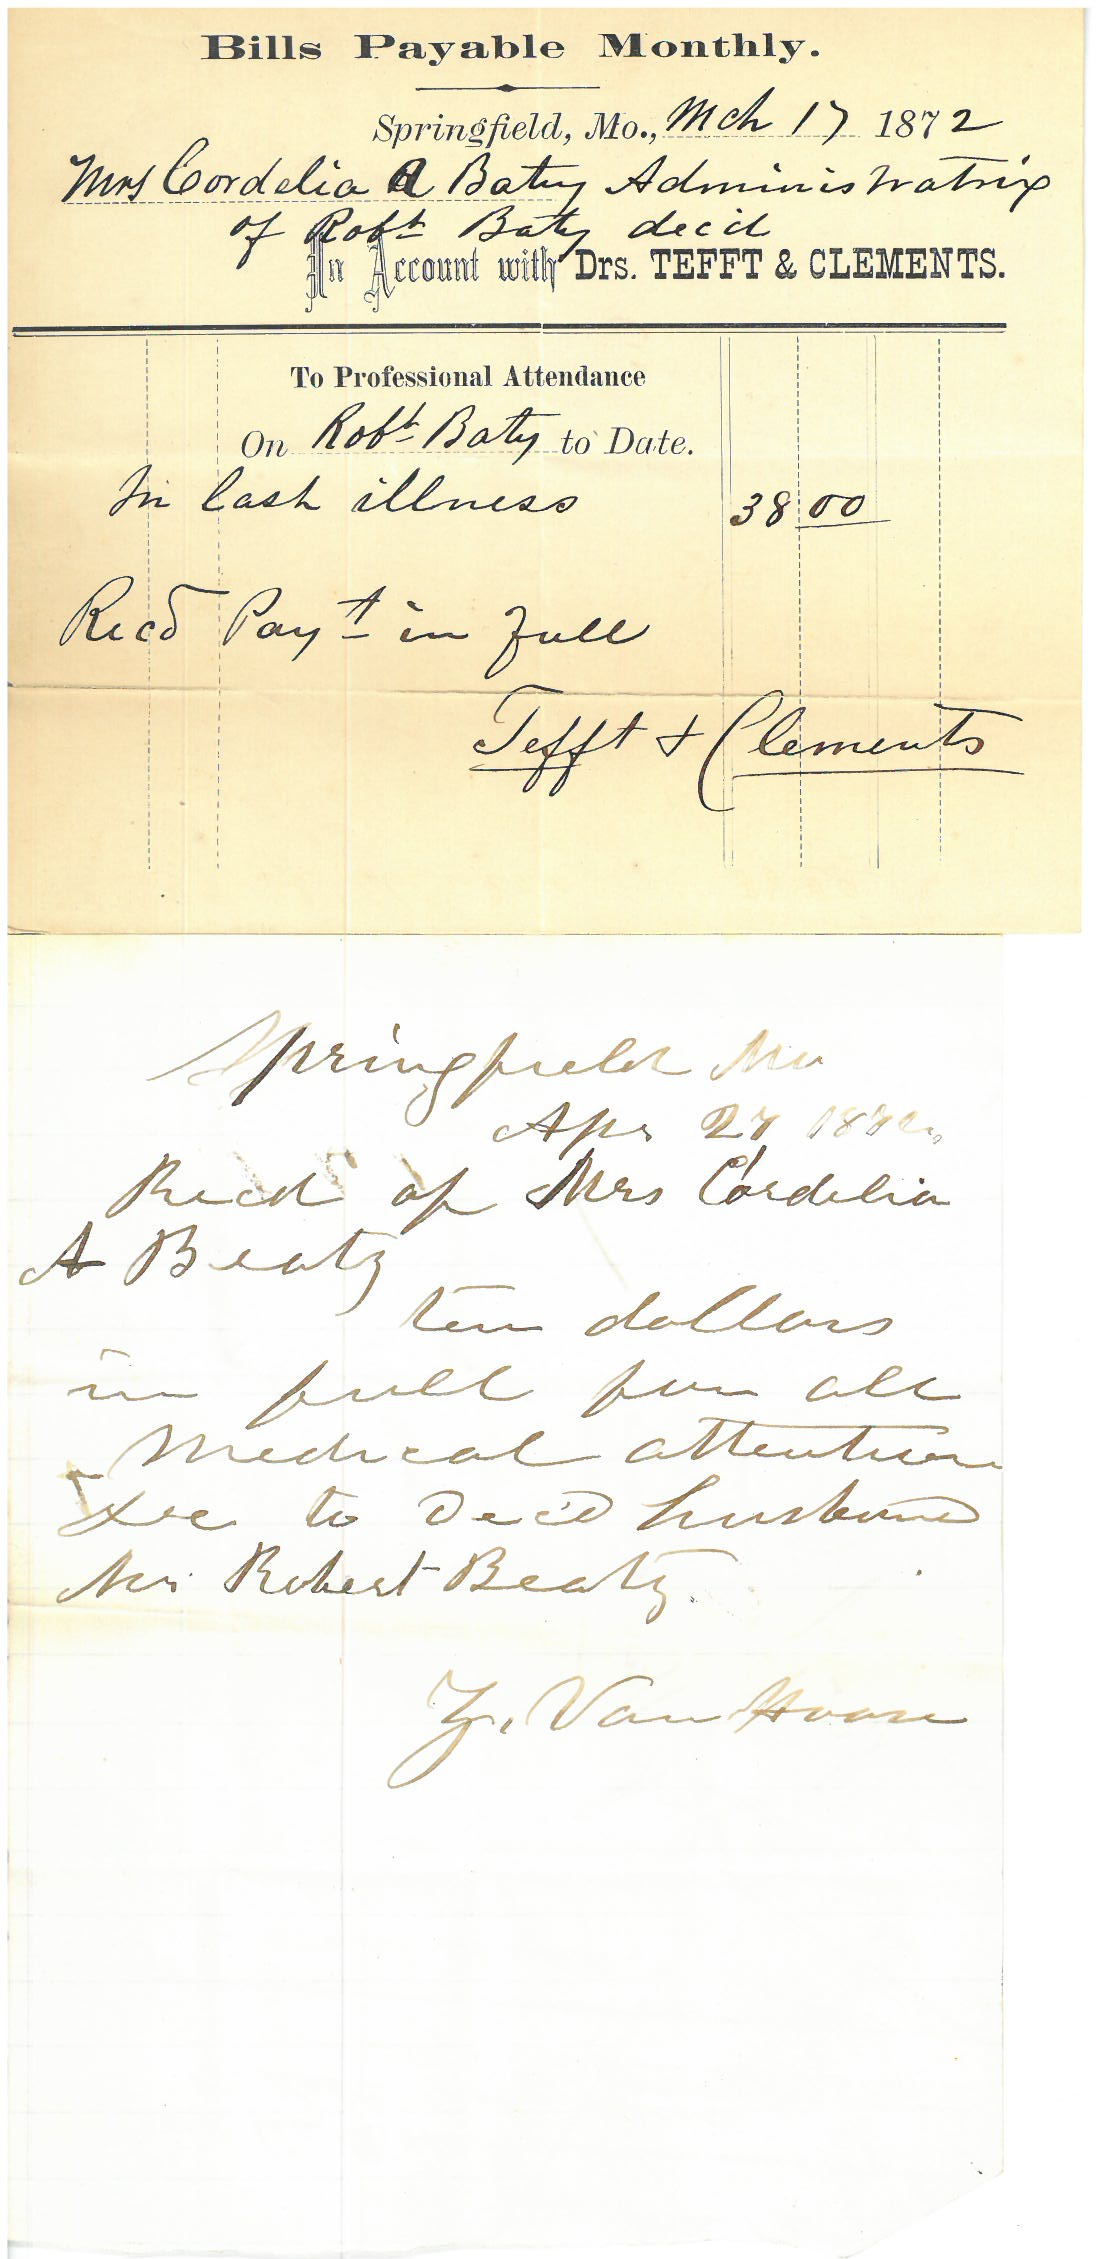 Bills Payable Monthly.
Springfield, Mo., Mch 17 1872
Mrs Cordelia A Baty Administratrix
of Robt Baty decd
In Account with Drs. TEFFT & CLEMENTS.
To Professional Attendance
On Robt Baty to Date.
In last illness 38 00
Recd Payt in full
Tefft & Clements
Springfield Mo
Apr 27 1872
Recd of Mrs Cordelia
A Beaty
ten dollars
in full for all
Medical attention
&c to Dec'd husband
Mr Robert Beaty.
Z. Van Hoose